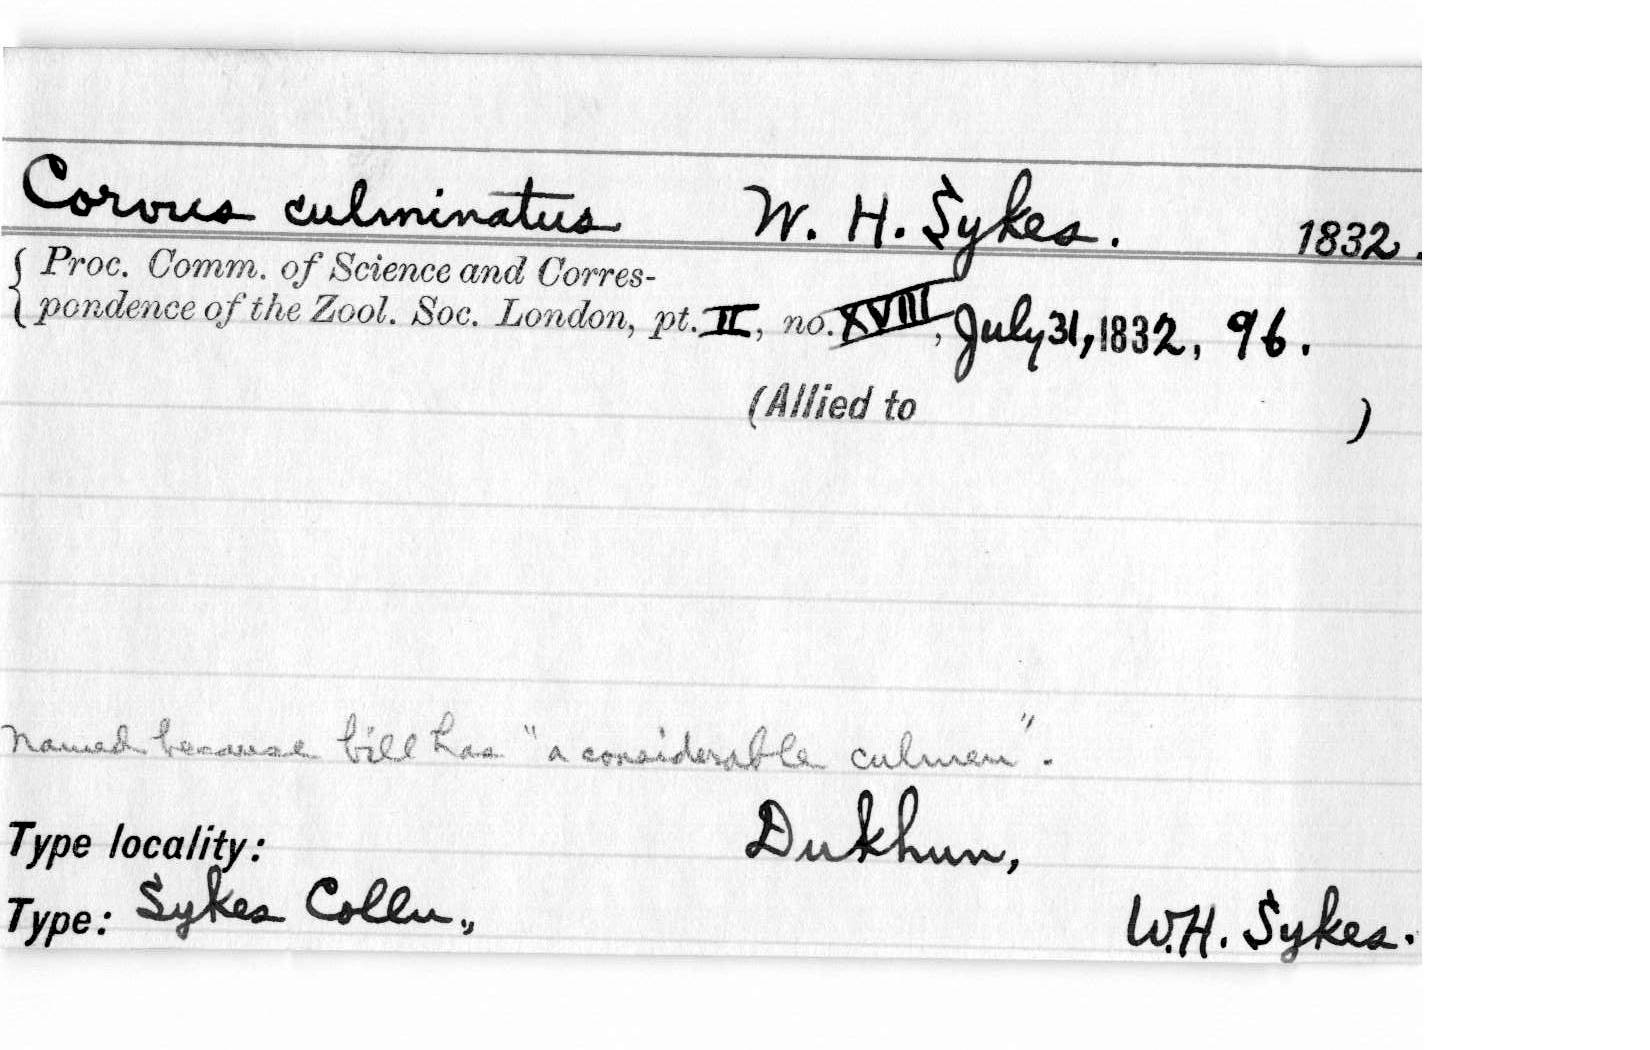 Corvus culminatus W. H. Sykes. 1832.
{ Proc. Comm. of Science and Corres-
pondence of the Zool. Soc. London, pt. II, no. XVIII, July 31, 1832, 96.
(Allied to )
Named because bill has "a considerable culmen".
Type locality: Dukhun,
Type: Sykes Colln., W.H. Sykes.